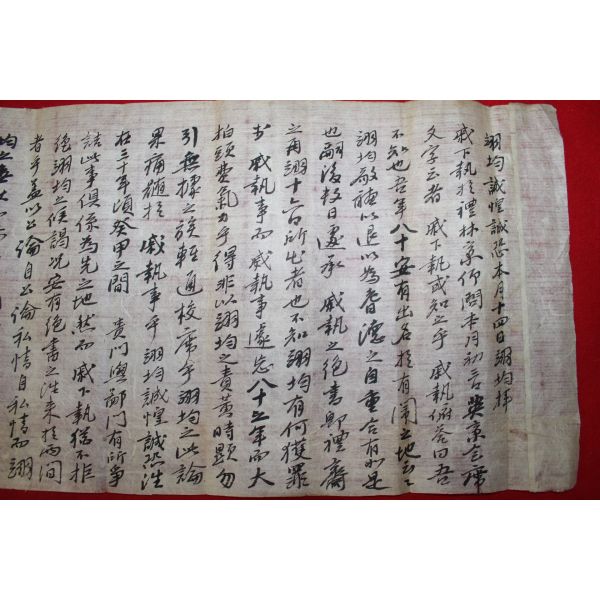 翊均誠惶誠恐本月十四日翊均拜
戚下執於禮林草仰問本月初吉英京会席
文字云者 戚下執或知之乎 戚執俯答曰吾
不知也吾年八十安有出名於有閙之地云云
翊均敬聽以退以為耆德之自重合有如是
也嗣後数日遽承 戚執之絶書即禮齋
之再翊十六日所出者也不知翊均有何獲罪
於 戚執事而 戚執事遽忘八十之年而大
拍頭費氣力乎得非以翊均之責黃時顯勿
引無據之族輕通校席乎翊均之此論
果痛確於 戚執事乎翊均誠惶誠恐泩
在三十年頃癸甲之間 貴門與鄙門有所爭
詰此事俱係為先之地然而 戚下執猶不拒
絶翊均之候謁况安有絶書之泩来於兩間
者乎盖以公論自公論私情自私情而翊
均之